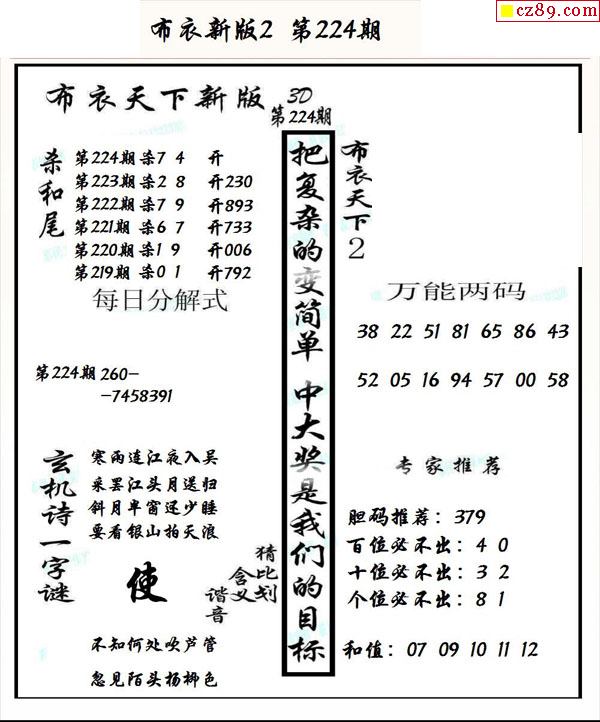 cz89.com
布衣新版2 第224期
布衣天下新版 3D
第224期
杀和尾
第224期杀7 4 开
第223期杀2 8 开230
第222期杀7 9 开893
第221期杀6 7 开733
第220期杀1 9 开006
第219期杀0 1 开792
每日分解式
第224期260-
-7458391
玄机诗一字谜
寒雨连江夜入吴
采罢江头月送归
斜月半窗还少睡
要看银山拍天浪
使
猜比划
含义
谐音
不知何处吹芦管
忽见陌头杨柳色
把复杂的变简单 中大奖是我们的目标
布衣天下2
万能两码
38 22 51 81 65 86 43
52 05 16 94 57 00 58
专家推荐
胆码推荐：379
百位必不出：4 0
十位必不出：3 2
个位必不出：8 1
和值：07 09 10 11 12